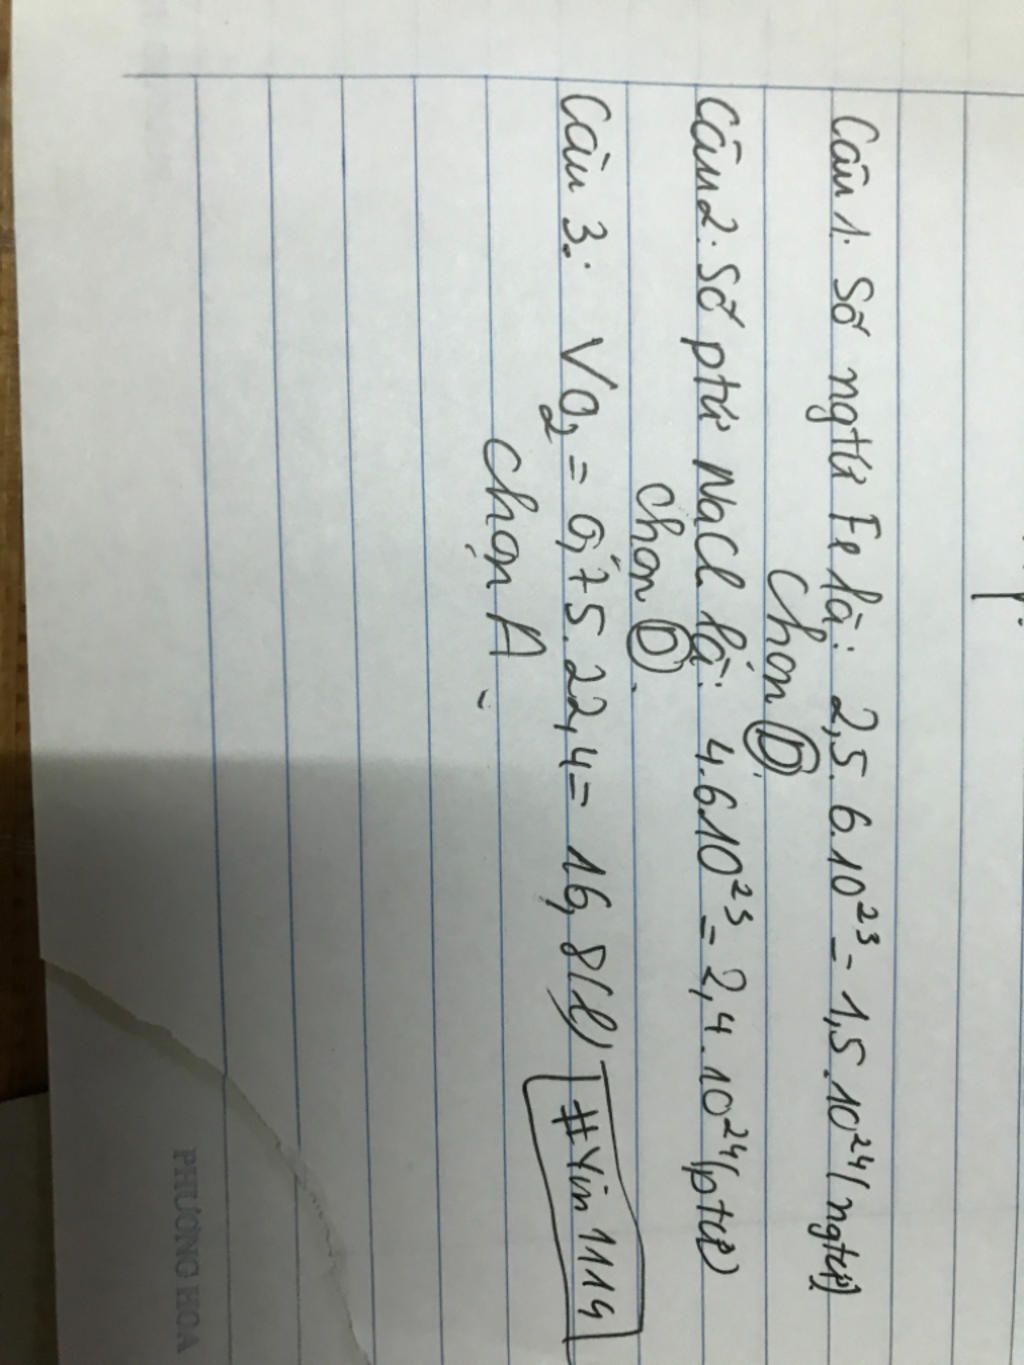 Câu 1. Số ngtử Fe là: 2,5. 6.10²³ = 1,5.10²⁴ (ngtử)
Chọn D.
Câu 2. Số ptử NaCl là: 4.6.10²³ = 2,4.10²⁴ (ptử)
chọn D.
Câu 3: VO₂ = 0,75.22,4 = 16,8(l)
chọn A.
#Yin1119
PHƯƠNG HOA